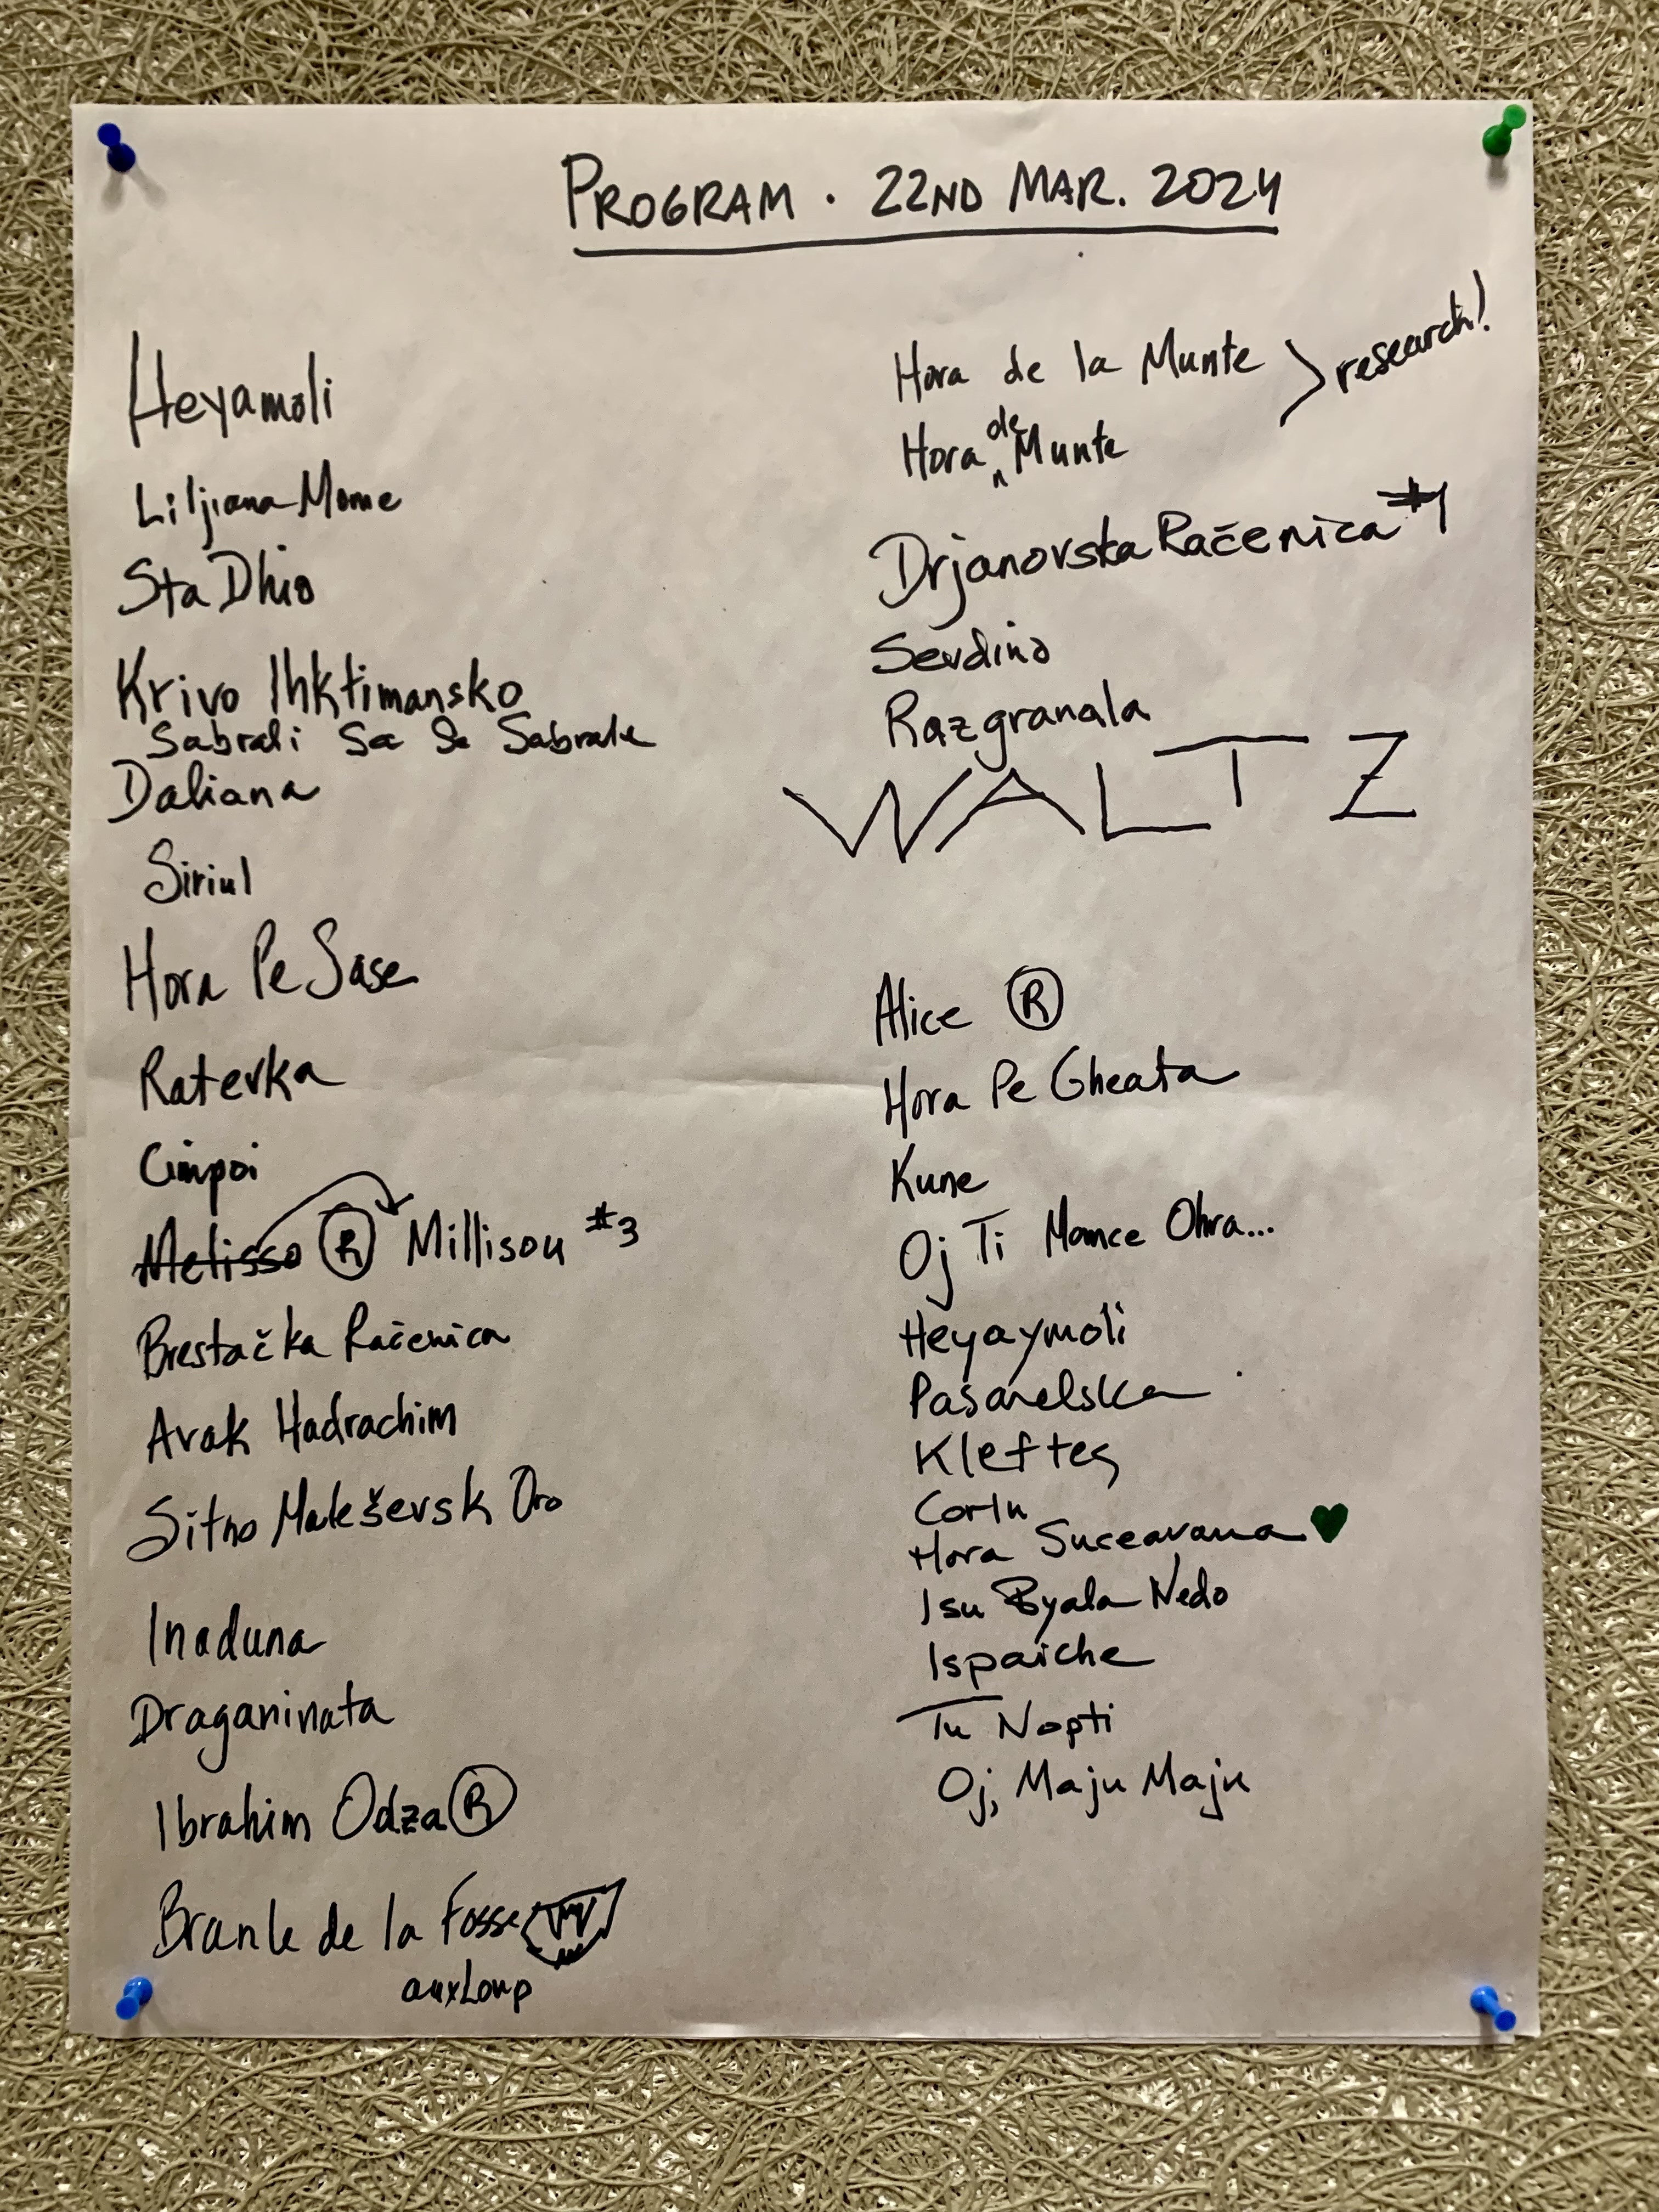 PROGRAM . 22ND MAR. 2024
Heyamoli
Liljiana Mome
Sta Dhio
Krivo Ihktimansko
Sabrali Sa Se Sabrale
Daliana
Siriul
Hora Pe Sase
Raterka
Cimpoi
Melisso Ⓡ Millisou #3
Brestačka Račenica
Arak Hadrachim
Sitno Maleševsk Oro
Inaduna
Draganinata
Ibrahim Odza Ⓡ
Branle de la Fosse
aux Loup
Hora de la Munte
research!
Hora de Munte
Drjanovska Račenica #1
Sevdino
Razgranala
WALTZ
Alice Ⓡ
Hora Pe Gheata
Kune
Oj Ti Momce Ohra...
Heyaymoli
Pašarelska
Kleftes
Corlu
Hora Suceavana
Isu Byala Nedo
Ispaiche
Tu Nopti
Oj, Maju Maju